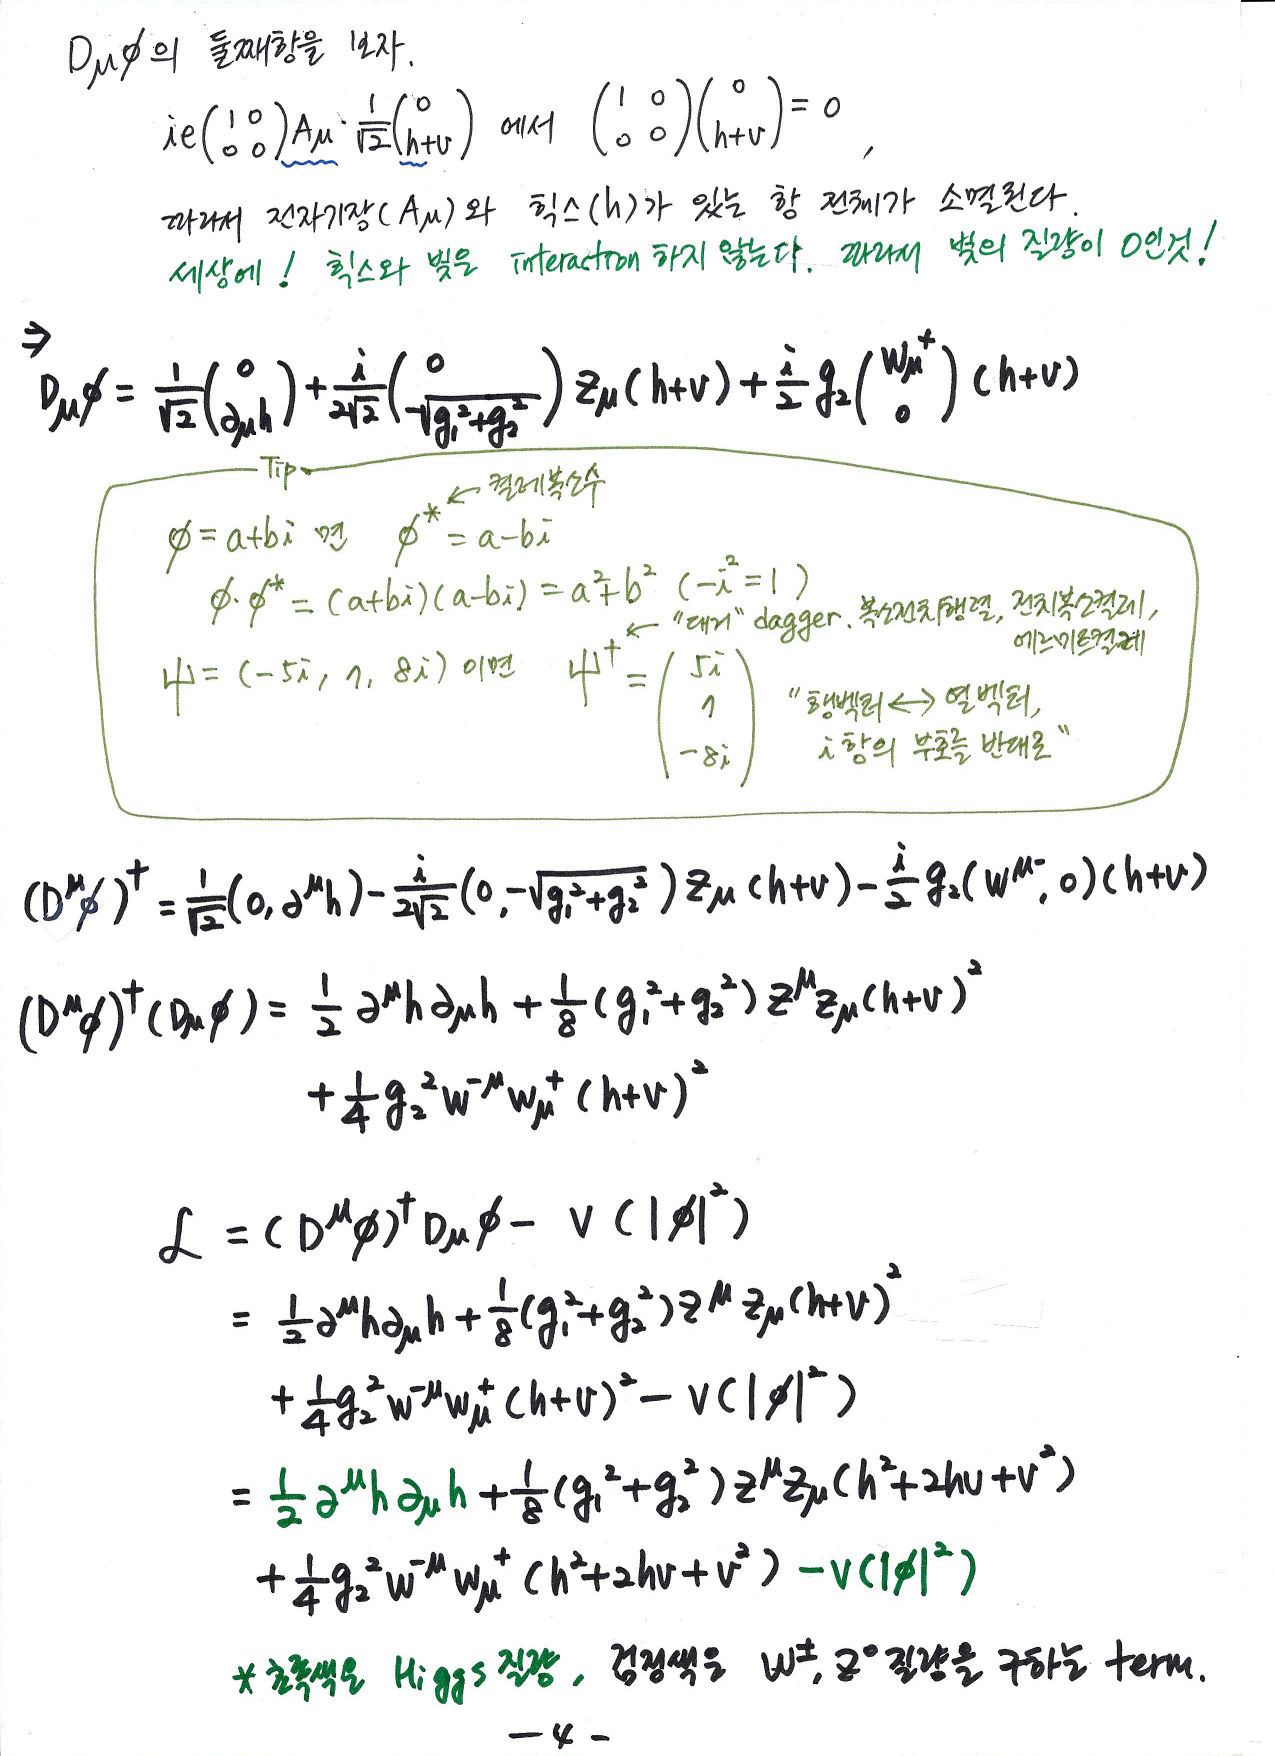 Dμφ의 둘째항을 보자.
ie(1 0 / 0 0)Aμ · 1/√2 (0 / h+v) 에서 (1 0 / 0 0)(0 / h+v) = 0,
따라서 전자기장(Aμ)와 힉스(h)가 있는 항 전체가 소멸된다.
세상에! 힉스와 빛은 interaction 하지 않는다. 따라서 빛의 질량이 0인것!
⇒
Dμφ = 1/√2 (0 / ∂μh) + i/2√2 (0 / -√g₁²+g₂²) Zμ(h+v) + i/2 g₂(Wμ⁺ / 0)(h+v)
Tip
← 켤레복소수
φ = a+bi 면 φ* = a-bi
φ·φ* = (a+bi)(a-bi) = a²+b² (-i²=1)
← "대거" dagger. 복소전치행렬, 전치복소켤레,
에르미트켤레
ψ = (-5i, 7, 8i) 이면 ψ† = (5i / 7 / -8i)
"행벡터 ↔ 열벡터,
i항의 부호를 반대로"
(D^μφ)† = 1/√2 (0, ∂^μh) - i/2√2 (0, -√g₁²+g₂²) Zμ(h+v) - i/2 g₂(W^μ⁻, 0)(h+v)
(D^μφ)†(Dμφ) = 1/2 ∂^μh∂μh + 1/8 (g₁²+g₂²) Z^μZμ(h+v)²
+ 1/4 g₂²W^-μWμ⁺(h+v)²
ℒ = (D^μφ)†Dμφ - V(|φ|²)
= 1/2 ∂^μh∂μh + 1/8 (g₁²+g₂²)Z^μZμ(h+v)²
+ 1/4 g₂²W^-μWμ⁺(h+v)² - V(|φ|²)
= 1/2 ∂^μh∂μh + 1/8 (g₁²+g₂²)Z^μZμ(h²+2hv+v²)
+ 1/4 g₂²W^-μWμ⁺(h²+2hv+v²) - V(|φ|²)
* 초록색은 Higgs 질량, 검정색은 W±, Z⁰ 질량을 구하는 term.
-4-